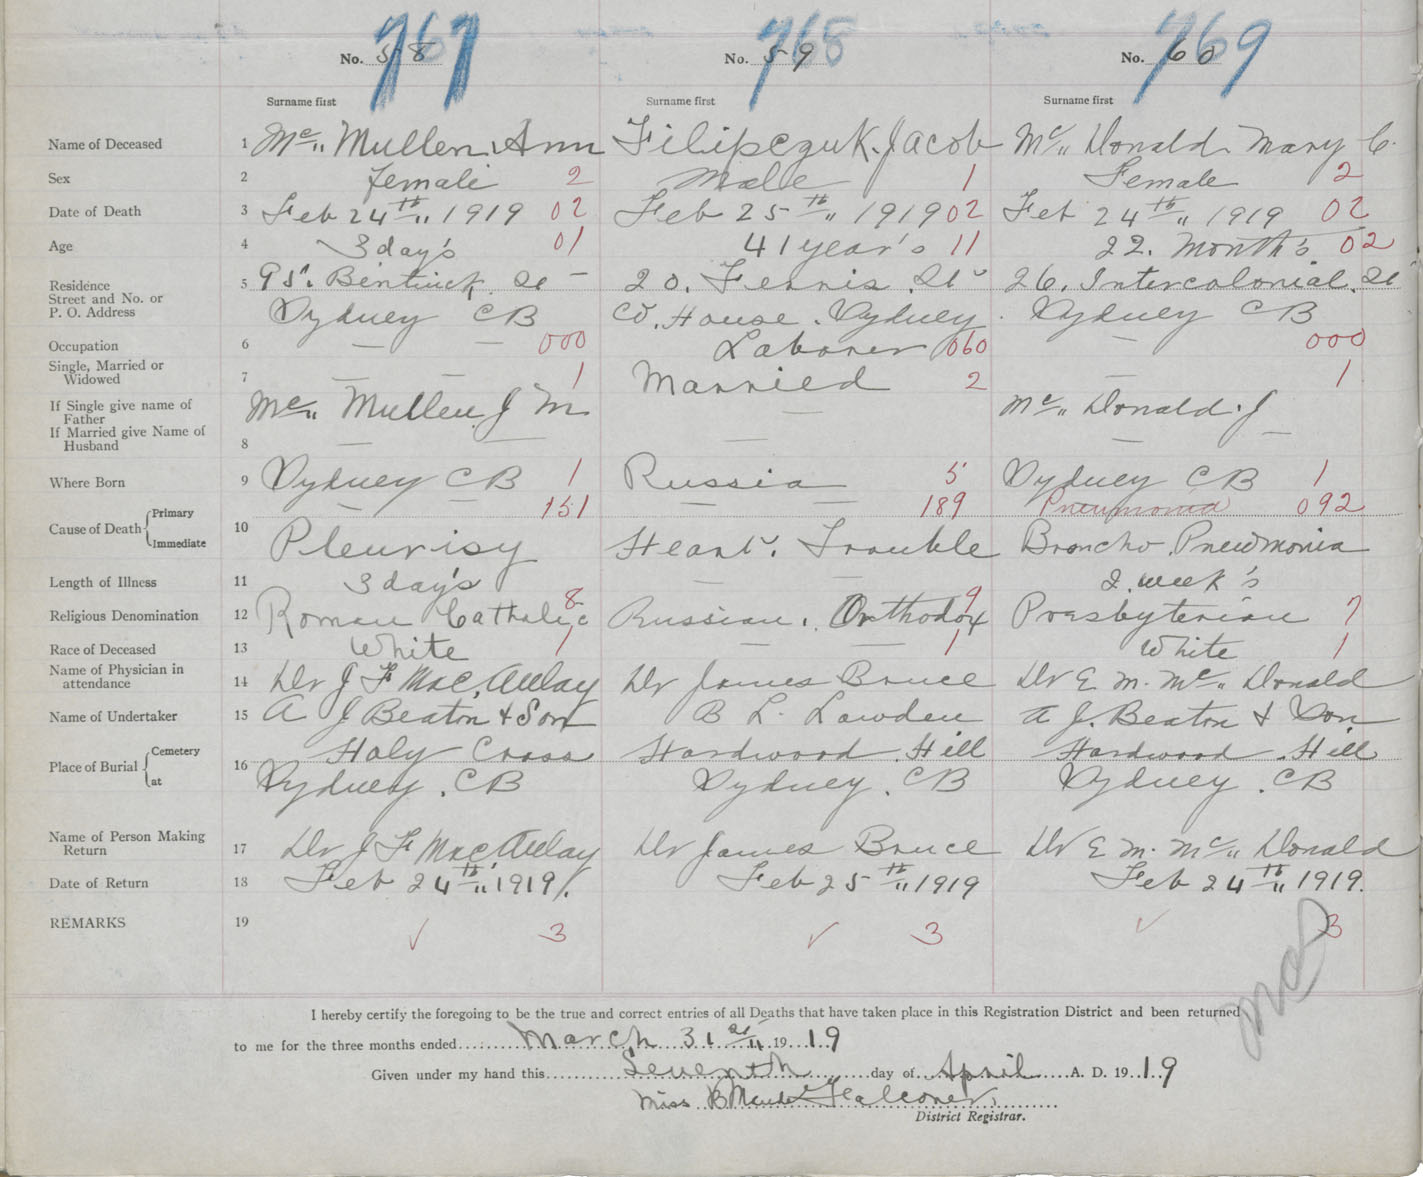 767 768 769
No. 58 No. 59 No. 60
Surname first Surname first Surname first
Name of Deceased 1 Mc" Mullen. Ann Filipczuk. Jacob Mc" Donald. Mary C.
Sex 2 female 2 Male 1 Female 2
Date of Death 3 Feb 24th" 1919 02 Feb 25th" 1919 02 Feb 24th" 1919 02
Age 4 3 day's 01 41 year's 11 22. Month's 02
Residence 5 95. Bentinck. St 20. Ferris. St 26. Intercolonial. St
Street and No. or
P. O. Address Sydney CB Co. House. Sydney. Sydney CB
Occupation 6 — — 000 Laborer 060 — 000
Single, Married or
Widowed 7 — — 1 Married 2 — 1
If Single give name of
Father Mc" Mullen. J M — Mc" Donald. J
If Married give Name of
Husband 8 — — — — —
Where Born 9 Sydney CB 1 Russia 5 Sydney CB 1
Cause of Death { Primary — — 151 — — 189 Pneumonia 092
Immediate 10 Pleurisy Heart. Trouble Broncho. Pneumonia
Length of Illness 11 3 day's — — 2. week's
Religious Denomination 12 Roman Catholic 8 Russian. Orthodox 9 Presbyterian 7
Race of Deceased 13 White 1 — — 1 White 1
Name of Physician in
attendance 14 Dr J F Mac. Aulay Dr James Bruce Dr E M. Mc" Donald
Name of Undertaker 15 A J Beaton & Son B L. Lowden A J. Beaton & Son
Place of Burial { Cemetery Holy Cross Hardwood. Hill Hardwood. Hill
at 16 Sydney. CB Sydney. CB Sydney. CB
Name of Person Making
Return 17 Dr J F Mac. Aulay Dr James Bruce Dr E M. Mc" Donald
Date of Return 18 Feb 24th" 1919. Feb 25th" 1919 Feb 24th" 1919.
REMARKS 19 ✓ 3 ✓ 3 ✓ 3
I hereby certify the foregoing to be the true and correct entries of all Deaths that have taken place in this Registration District and been returned
to me for the three months ended March 31st" 1919
Given under my hand this Seventh day of April A. D. 1919
Miss B Falconer.
District Registrar.